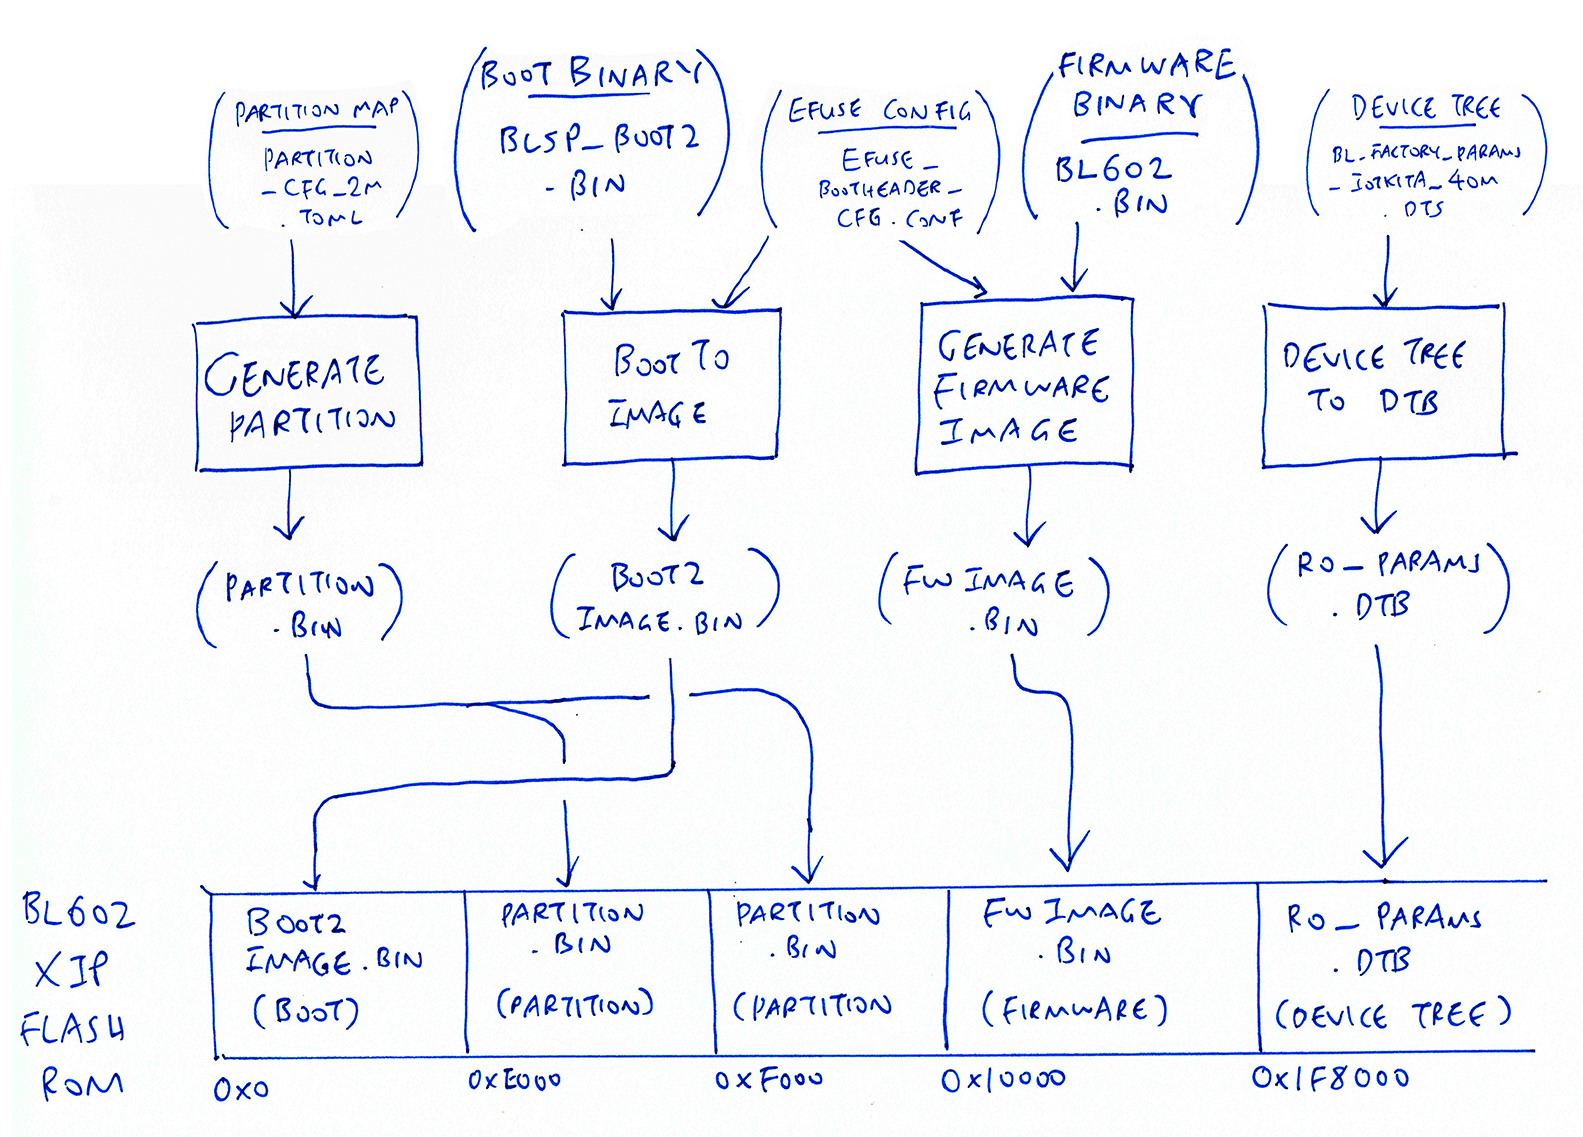 PARTITION MAP
PARTITION
- CFG_2M
. TOML
BOOT BINARY
BLSP_BOOT2
. BIN
EFUSE CONFIG
EFUSE_
BOOTHEADER_
CFG. CONF
FIRMWARE
BINARY
BL602
. BIN
DEVICE TREE
BL_FACTORY_PARAMS
_ IOTKITA_40M
. DTS
GENERATE
PARTITION
BOOT TO
IMAGE
GENERATE
FIRMWARE
IMAGE
DEVICE TREE
TO DTB
PARTITION
. BIN
BOOT2
IMAGE.BIN
FW IMAGE
. BIN
RO_PARAMS
. DTB
BL602
XIP
FLASH
ROM
BOOT2
IMAGE.BIN
(BOOT)
PARTITION
. BIN
(PARTITION)
PARTITION
. BIN
(PARTITION
FW IMAGE
. BIN
(FIRMWARE)
RO_PARAMS
. DTB
(DEVICE TREE)
0x0
0xE000
0xF000
0x10000
0x1F8000